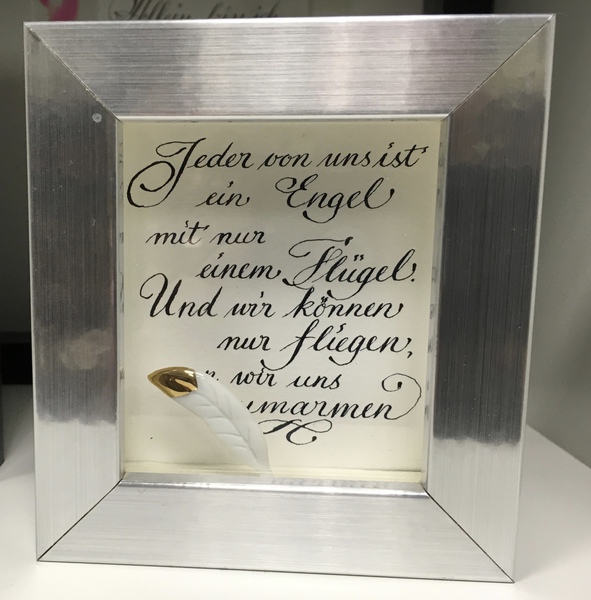 Allein bin ich
Jeder von uns ist
ein Engel
mit nur
einem Flügel.
Und wir können
nur fliegen,
wir uns
umarmen